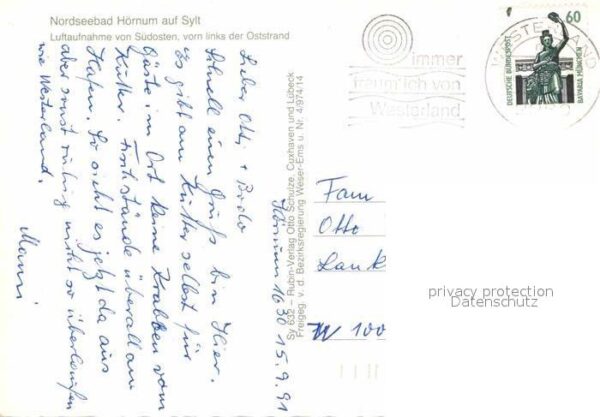 Nordseebad Hörnum auf Sylt
Luftaufnahme von Südosten, vorn links der Oststrand
Hörnum 16 30 15.9.91
Lieber Otti +
Schnell einen Gruß bin Hier.
Es gibt am Kutter selbst für
Gäste im Ort keine Krabben vom
Kutter. überall am
Hafen. So sieht es jetzt da aus
aber sonst ruhig nicht so überlaufen
wie Westerland.
Manni
Sy 632 – Rubin-Verlag Otto Schulze, Cuxhaven und Lübeck
Freigeg. v. d. Bezirksregierung Weser-Ems u. Nr. 4/974/14
immer
freundlich von
Westerland
WESTERLAND
60
DEUTSCHE BUNDESPOST
BAVARIA MÜNCHEN
Fam
Otto
Lank
W 100
privacy protection
Datenschutz